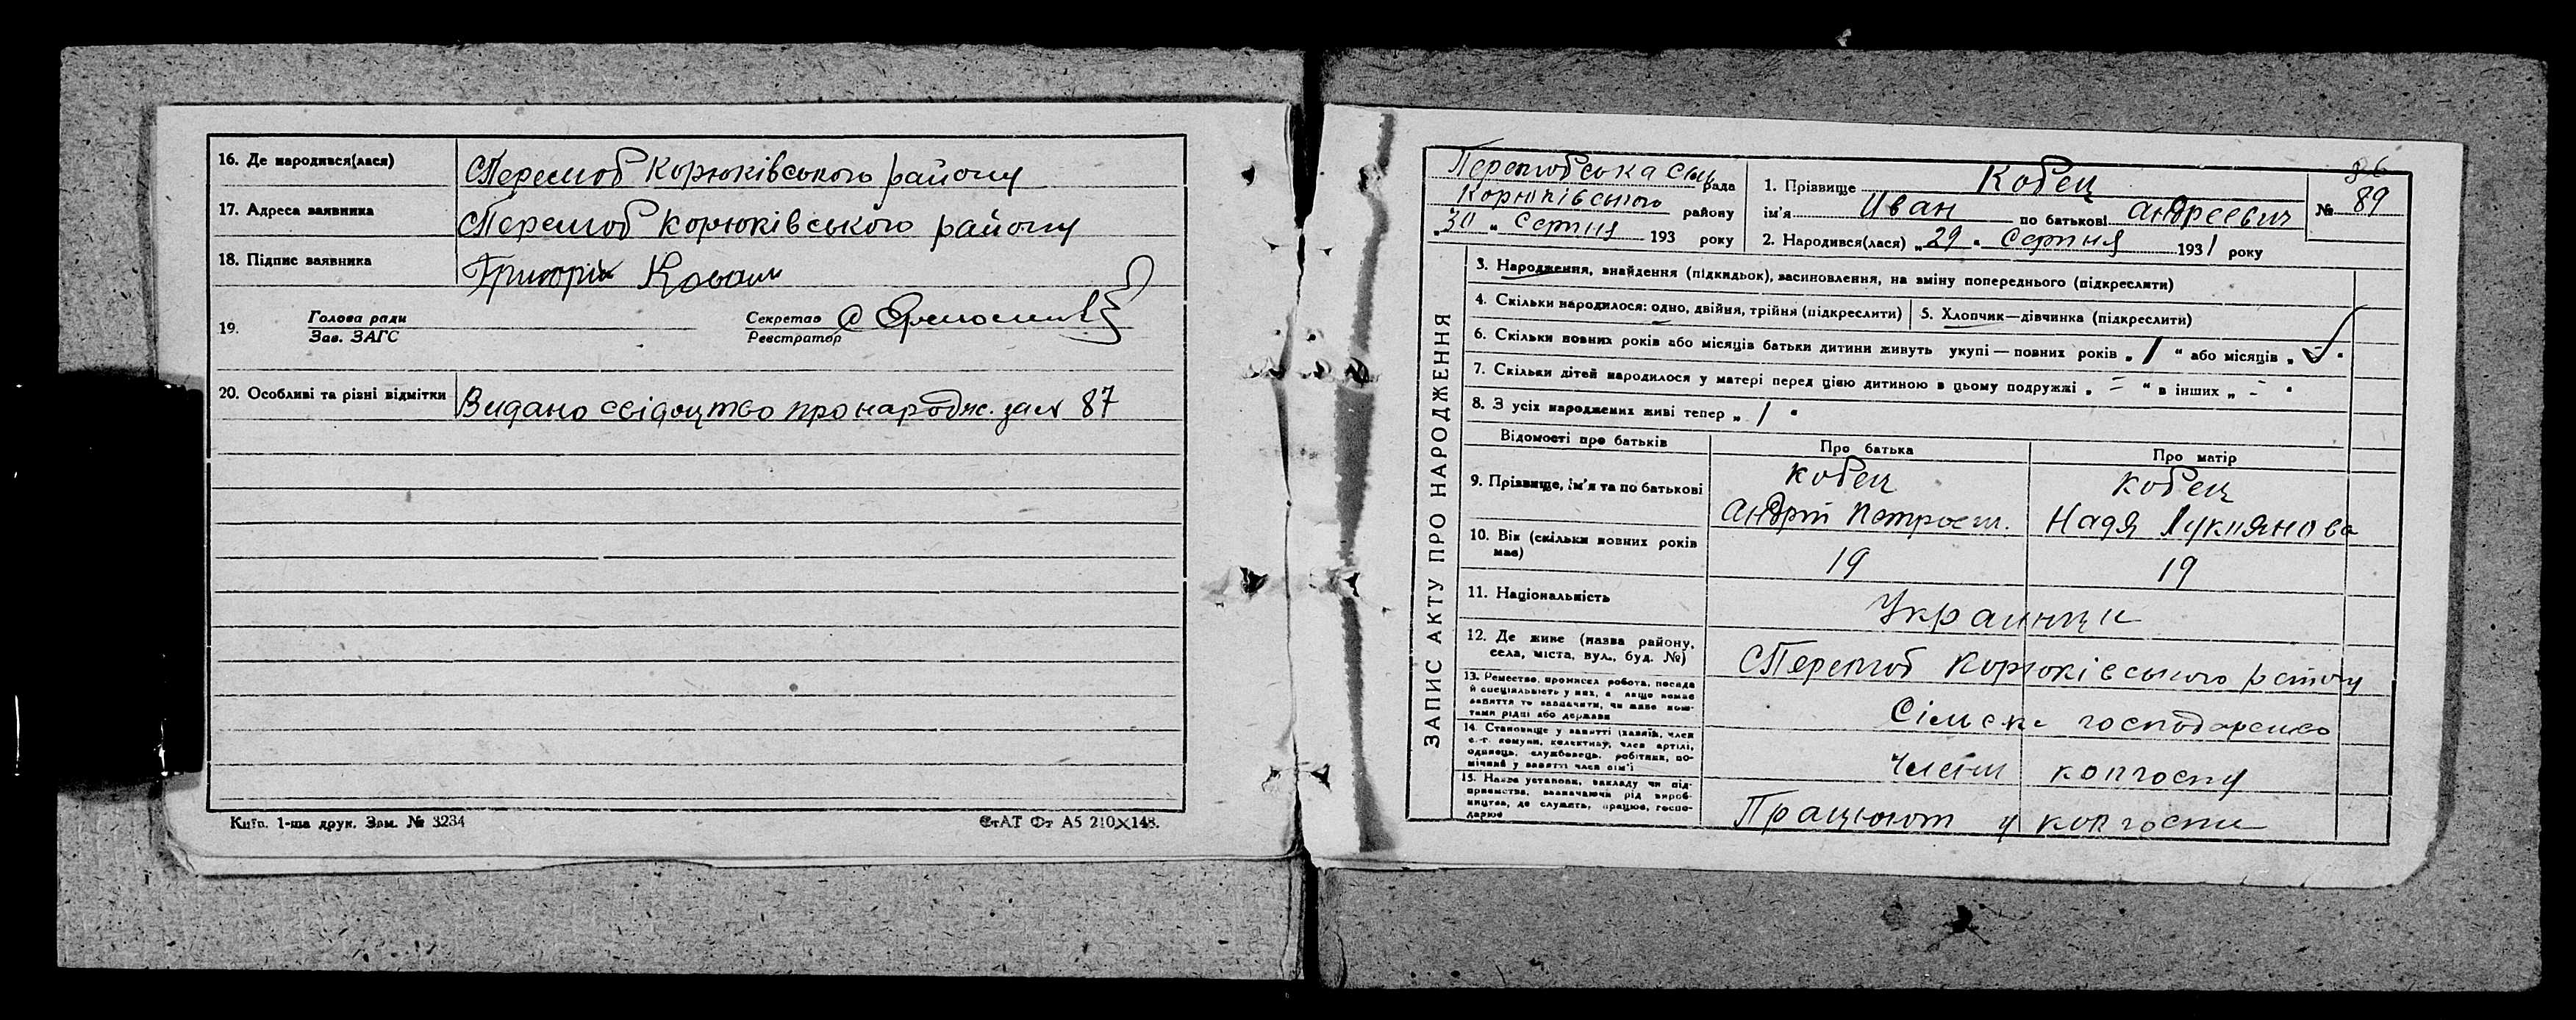 16. Де народився(лася) с Перелюб Корюківського району
17. Адреса заявника с Перелюб Корюківського району
18. Підпис заявника Григорій
19. Голова ради
Зав. ЗАГС
Секретар
Реєстратор
20. Особливі та різні відмітки Видано свідоцтво про народж. за № 87
Київ. 1-ша друк. Зам. № 3234
СтАТ Фт А5 210×148.
ЗАПИС АКТУ ПРО НАРОДЖЕННЯ
Перелюбська сіль рада
Корюківського району
„30 „ Серпня 193 року
1. Прізвище Кобец
ім'я Иван по батькові Андреевич
2. Народився(лася) „29 „ Серпня 1931 року
86
№ 89
3. Народження, знайдення (підкидьок), засиновлення, на зміну попереднього (підкреслити)
4. Скільки народилося: одно, двійня, трійня (підкреслити)
5. Хлопчик—дівчинка (підкреслити)
6. Скільки повних років або місяців батьки дитини живуть укупі — повних років „ 1 “ або місяців „
7. Скільки дітей народилося у матері перед цією дитиною в цьому подружжі „ – “ в інших „ – “
8. З усіх народжених живі тепер „ 1 “
Відомості про батьків
Про батька
Про матір
9. Прізвище, ім'я та по батькові
Кобец
Андрій Петрович.
Кобец
Надя Лукиянова
10. Вік (скільки повних років має)
19
19
11. Національність
Украинци
12. Де живе (назва району, села, міста, вул., буд. №)
с Перелюб Корюківського району
13. Ремество, промисел, робота, посада й спеціяльність у них, а якщо немає заняття то зазначити, чи живе коштами рідні або держави
Сільске господарство
14. Становище у занятті (хазяїн, член с.-г. комуни, колективу, член артілі, одинець, службовець, робітник, помічний у занятті член сім'ї
Члени колгоспу
15. Назва установи, закладу чи підприємства, зазначаючи рід виробництва, де служить, працює, господарює
Працюют у колгоспи